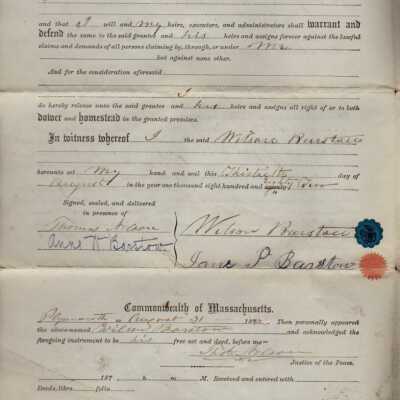 and that I will and my heirs, executors, and administrators shall warrant and
defend the same to the said grantee and his heirs and assigns forever against the lawful
claims and demands of all persons claiming by, through, or under Me
but against none other.
And for the consideration aforesaid
I
do hereby release unto the said grantee and his heirs and assigns all right of or to both
dower and homestead in the granted premises.
In witness whereof I the said Wilson Barstow
hereunto set My hand and seal this Thirtieth day of
August in the year one thousand eight hundred and eighty Two
Signed, sealed, and delivered
in presence of
Anne H Barstow
Wilson Barstow
Jane P Barstow
Commonwealth of Massachusetts.
Plymouth ss August 31 188 Then personally appeared
the abovenamed Wilson Barstow and acknowledged the
foregoing instrument to be his free act and deed, before me—
Justice of the Peace.
187 h. m. M. Received and entered with
Deeds, libro folio